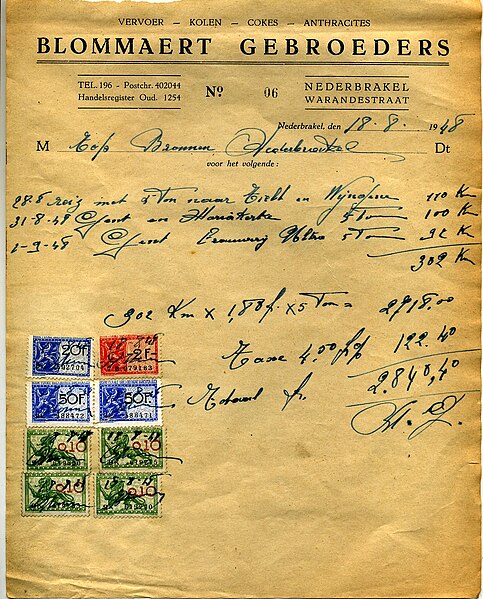 VERVOER – KOLEN – COKES – ANTHRACITES
BLOMMAERT GEBROEDERS
TEL. 196 - Postchr. 402044
Handelsregister Oud. 1254
Nº 06
NEDERBRAKEL
WARANDESTRAAT
Nederbrakel, den 18-8- 1948
M Top Bronnen Nederbrakel Dt
voor het volgende:
28-8 reis met 5 Ton naar en 110 Km
31-8-48 Gent en Mariakerke 5 Ton 100 Km
1-9-48 Gent Brouwerij 5 Ton 92 Km
302 Km
302 Km x 1,80 f. x 5 Ton = 2718,00
Taxe 4.50 122.40
2.840,40
fr.
20F 2F
302704 079183
50F 50F
88472 88471
0.10 0.10
0.10 0.10